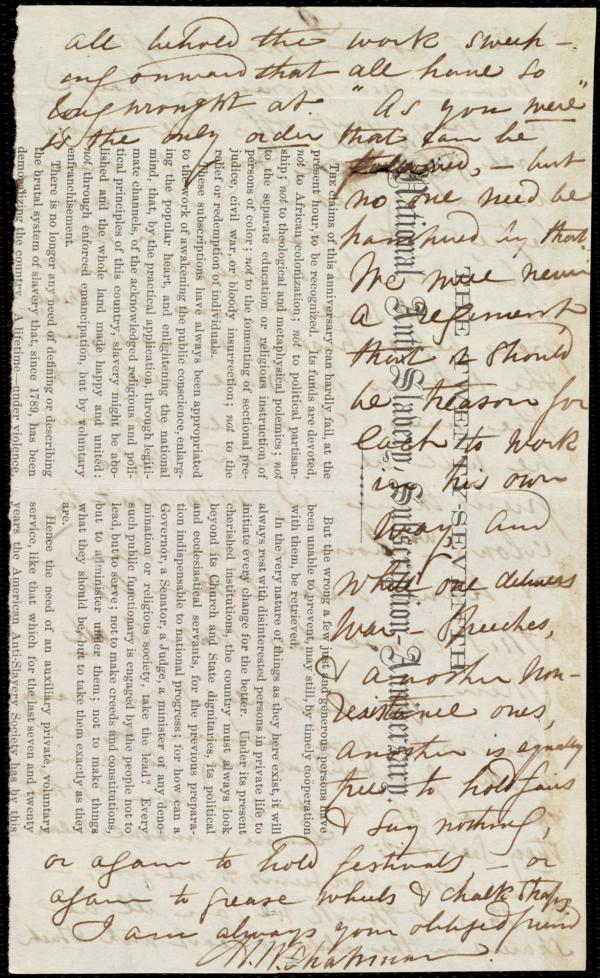 all behold the work sweep-
ing onward that all have so
long wrought at. "As you were"
is the only order that can be
followed, — but
no one need be
hampered by that.
We were never
a regiment
that it should
be treason for
each to work
in his own
way. And
while one delivers
war-speeches,
& another Non-
resistance ones,
another is equally
free to hold fairs
& say nothing,
or again to hold festivals, — or
again to grease wheels & chalk traps.
I am always your obliged friend
M. W. Chapman.
THE TWENTY-SEVENTH
National Anti-Slavery Subscription-Anniversary.
THE claims of this anniversary can hardly fail, at the
present hour, to be recognized. Its funds are devoted,
not to African colonization; not to political partisan-
ship; not to theological and metaphysical polemics; not
to the separate education or religious instruction of
persons of color; not to the fomenting of sectional pre-
judice, civil war, or bloody insurrection; not to the
relief or redemption of individuals.
These subscriptions have always been appropriated
to the work of awakening the public conscience, enlarg-
ing the popular heart, and enlightening the national
mind, that, by the practical application, through legiti-
mate channels, of the acknowledged religious and poli-
tical principles of this country, slavery might be abo-
lished and the whole land made happy and united:
not through enforced emancipation, but by voluntary
enfranchisement.
There is no longer any need of defining or describing
the brutal system of slavery that, since 1789, has been
demoralizing the country. A lifetime—under violence,
But the wrong a few just and generous persons have
been unable to prevent, may still, by timely coöperation
with them, be retrieved.
In the very nature of things as they here exist, it will
always rest with disinterested persons in private life to
initiate every change for the better. Under its present
cherished institutions, the country must always look
beyond its Church and State dignitaries, its political
and ecclesiastical servants, for the previous prepara-
tion indispensable to national progress; for how can a
Governor, a Senator, a Judge, a minister of any deno-
mination or religious society, take the lead? Every
such public functionary is engaged by the people not to
lead, but to serve; not to make creeds and constitutions,
but to administer under them; not to make things
what they should be, but to take them exactly as they
are.
Hence the need of an auxiliary private, voluntary
service, like that which for the last seven and twenty
years the American Anti-Slavery Society has by this